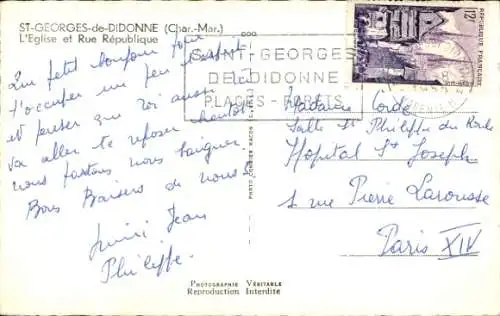 ST-GEORGES-de-DIDONNE (Char.-Mar.)
L'Eglise et Rue République
Un petit bonjour pour
t'occuper un peu l'esprit
et penser que toi aussi
va aller te reposer
nous partons nous baigner
Bons Baisers de nous
Jean
Philippe
SAINT-GEORGES
DE DIDONNE
PLAGES - FORÊTS
12F
POSTES
RÉPUBLIQUE FRANÇAISE
PHOTO COMBIER MACON
Madame Cordo
Salle St Philippe du Roule
Hôpital St Joseph
1 rue Pierre Larousse
Paris XIV
PHOTOGRAPHIE VÉRITABLE
Reproduction Interdite